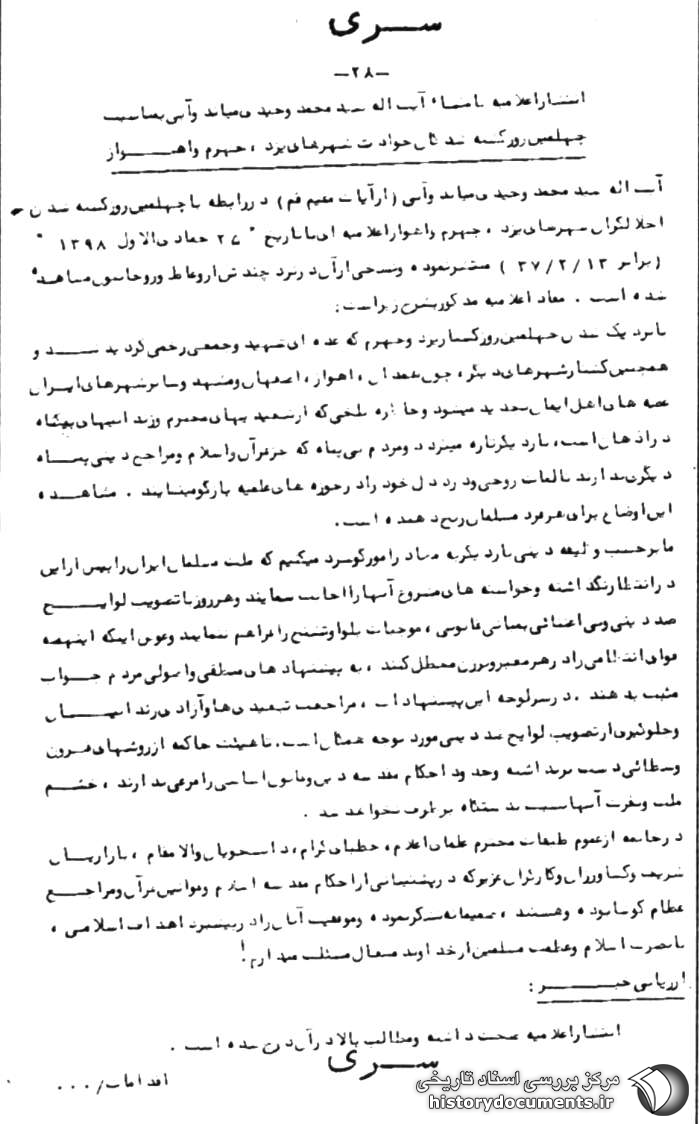 سری
-۲۸-
انتشار اعلامیه با امضاء آیت اله سید محمد وحیدی میاندوآبی بمناسبت
چهلمین روز کشته شدگان حوادث شهرهای یزد ، جهرم و اهواز
آیت اله سید محمد وحیدی میاندوآبی (از آیات مقیم قم) در رابطه با چهلمین روز کشته شدن
اخلالگران شهرهای یزد ، جهرم و اهواز اعلامیه ای با تاریخ " ۲۷ جمادی الاول ۱۳۹۸ "
(برابر ۳۷/۲/۱۳) منتشر نموده و نسخی از آن در نزد چند تن از وعاظ و روحانیون مشاهده
شده است . مفاد اعلامیه مذکور بشرح زیر است :
با نزدیک شدن چهلمین روز کشتار یزد و جهرم که عده ای شهید و جمعی زخمی گردیدند و
همچنین کشتار شهرهای دیگر ، چون همدان ، اهواز ، اصفهان و مشهد و سایر شهرهای ایران
غصه های اهل ایمان تجدید میشود و خاطره تلخی که از شهید بهای محترم و زندانیهای بیگناه
در اذهان است ، بار دیگر تازه میگردد و مردم بی پناه که جز قرآن و اسلام و مراجع دینی پناه
دیگری ندارند با لغات روحی و درد دل خود را در حوزه های علمیه بازگو مینمایند . مشاهده
این اوضاع برای هر فرد مسلمان رنج دهنده است .
ما بر حسب وظیفه دینی بار دیگر به مبادی امور گوشزد میکنیم که ملت مسلمان ایران را بیش از این
در انتظار نگذاشته و خواسته های مشروع آنها را اجابت نمایند و هر روز با تصویب لوایح
ضد دینی و بی اعتنائی بمبانی قانونی ، موجبات بلوا و تشنج را فراهم ننمایند و عوض اینکه اینهمه
قوای انتظامی را در هر معبر و برزن معطل کنند ، به پیشنهادهای منطقی و اصولی مردم جواب
مثبت بدهند . در سرلوحه این پیشنهادات ، مراجعت تبعیدی ها و آزادی زندانیان
و جلوگیری از تصویب لوایح ضد دینی مورد توجه همگان است . تا هیئت حاکمه از روشهای قرون
وسطائی دست برنداشته و حدود احکام مقدسه دین و قانون اساسی را مرعی ندارند ، خشم
ملت و نفرت آنها نسبت به دستگاه برطرف نخواهد شد .
در خاتمه از عموم طبقات محترم علمای اعلام ، خطبای کرام ، دانشجویان والامقام ، بازاریان
شریف و کشاورزان و کارگران عزیز که در پشتیبانی از احکام مقدسه اسلام و قوانین قرآن و مراجع
عظام کوشا بوده و هستند ، صمیمانه تشکر نموده و موفقیت آنان را در پیشبرد اهداف اسلامی ،
با نصرت اسلام و عظمت مسلمین از خداوند متعال مسئلت میدارم !
ارزیابی خبر :
انتشار اعلامیه صحت داشته و مطالب بالا در آن درج شده است .
سری
اقدامات/ ...
مرکز بررسی اسناد تاریخی
historydocuments.ir